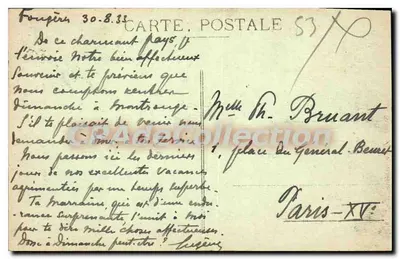 Fougères 30.8.33
CARTE POSTALE
53
De ce charmant pays je
t'envoie notre bien affectueux
souvenir et te préviens que
nous comptons rentrer
dimanche à Montrouge.
S'il te plaisait de venir nous
demander
Nous passons ici les derniers
jours de nos excellentes vacances
agrémentées par un temps superbe.
Ta Marraine, qui est d'une endu-
rance surprenante s'unit à moi
pour te dire mille choses affectueuses.
Donc à dimanche peut-être!
Eugène
Melle Th. Bruant
1, place du General-Beuret
Paris-XVe
SPADE Collection